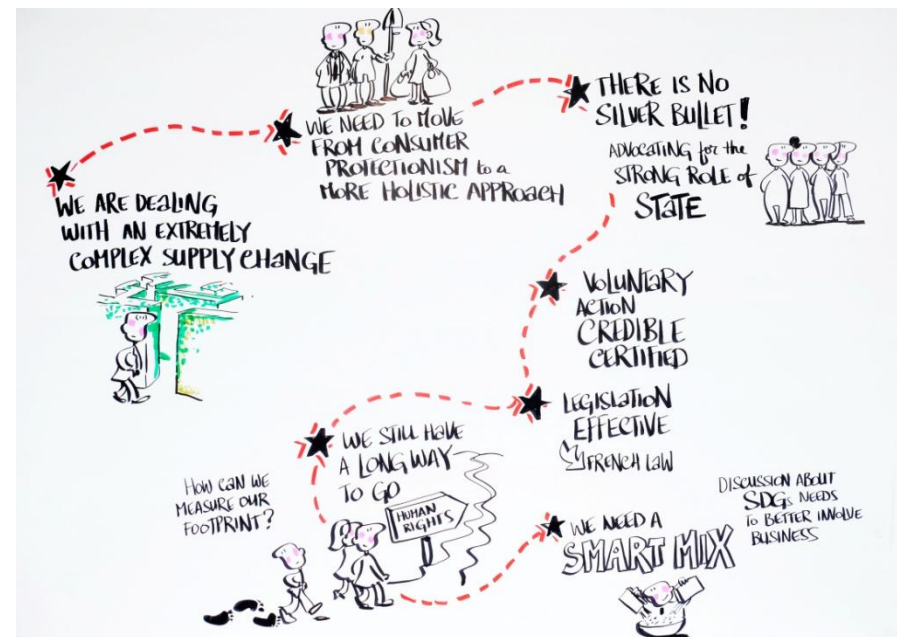 WE ARE DEALING
WITH AN EXTREMELY
COMPLEX SUPPLY CHANGE
WE NEED TO MOVE
FROM CONSUMER
PROTECTIONISM to a
MORE HOLISTIC APPROACH
THERE IS NO
SILVER BULLET!
ADVOCATING for the
STRONG ROLE of
STATE
VOLUNTARY
ACTION
CREDIBLE
CERTIFIED
LEGISLATION
EFFECTIVE
FRENCH LAW
WE STILL HAVE
A LONG WAY
TO GO
HUMAN
RIGHTS
HOW CAN WE
MEASURE OUR
FOOTPRINT?
WE NEED A
SMART MIX
DISCUSSION ABOUT
SDGs NEEDS
TO BETTER INVOLVE
BUSINESS